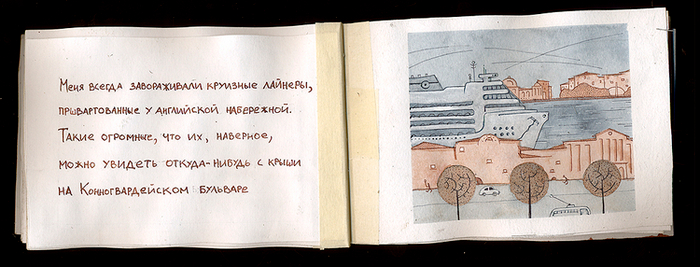 Меня всегда завораживали круизные лайнеры,
пршвартованные у Английской набережной.
Такие огромные, что их, наверное,
можно увидеть откуда-нибудь с крыши
на Конногвардейском бульваре